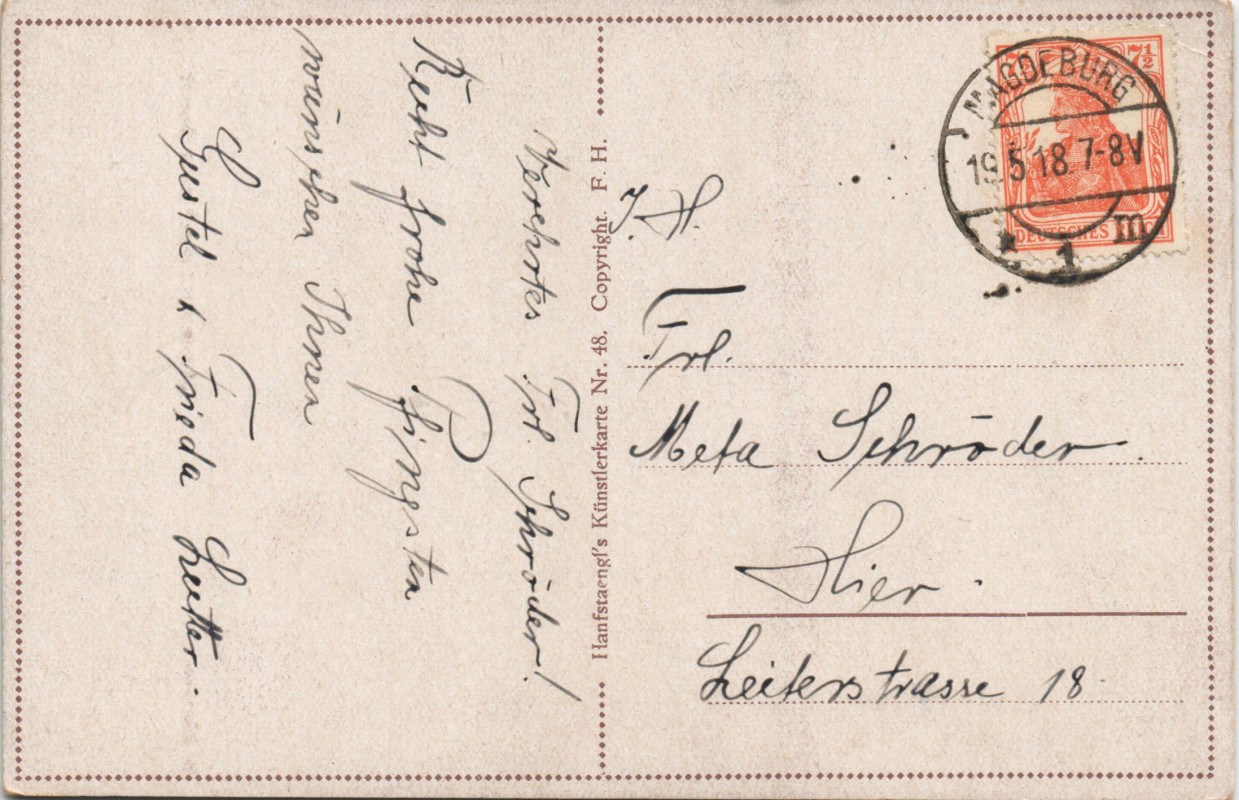 Verehrtes Frl. Schröder!
Recht frohe Pfingsten
wünschen Ihnen
Gustel & Frieda Lutter.
Hanfstaengl's Künstlerkarte Nr. 48. Copyright. F. H.
7½
MAGDEBURG
19.5.18.7-8V
DEUTSCHES
* 1 m
J. H.
Frl.
Meta Schröder.
Hier.
Leiterstrasse 18.